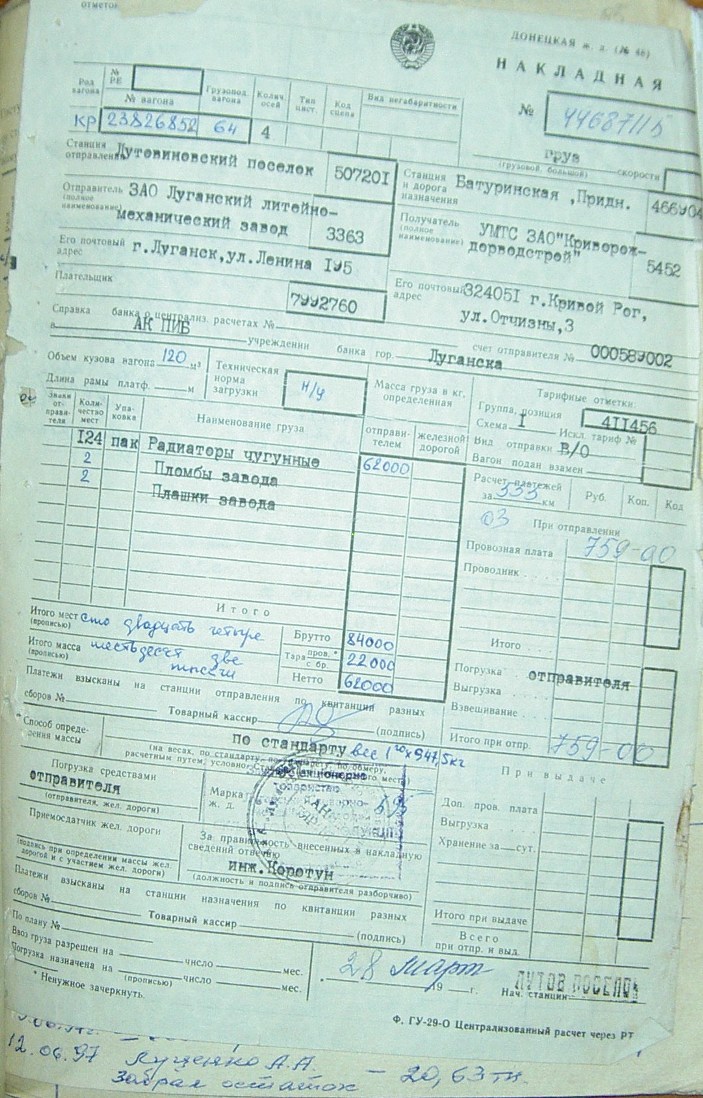 отметок
ДОНЕЦКАЯ ж. д. (№ 48)
НАКЛАДНАЯ
№ 44687115
Род вагона
№ РЕ
№ вагона
Грузопод. вагона
Колич. осей
Тип цист.
Код сцепа
Вид негабаритности
кр 23826852 64 4
груз
(грузовой, большой) скорости
Станция отправления Лутовиновский поселок 507201
Станция и дорога назначения Батуринская ,Придн. 466904
Отправитель (полное наименование) ЗАО Луганский литейно-
механический завод 3363
Получатель (полное наименование) УМТС ЗАО"Криворож-
дорводстрой" 5452
Его почтовый адрес г.Луганск,ул.Ленина 195
Его почтовый адрес 324051 г.Кривой Рог,
ул.Отчизны,3
Плательщик
7992760
Справка банка о централиз. расчетах №
в АК ПИБ учреждении банка гор. Луганска счет отправителя № 000589002
Объем кузова вагона 120 м³
Длина рамы платф. м
Техническая норма загрузки н/у
Масса груза в кг, определенная
отправителем
железной дорогой
Тарифные отметки:
Группа, позиция 411456
Схема I Искл. тариф №
Вид отправки В/О
Вагон подан взамен
Знаки отправителя
Количество мест
Упаковка
Наименование груза
124 пак Радиаторы чугунные 62000
2 Пломбы завода
2 Плашки завода
Расчет платежей за 333 км
Руб. Коп. Код
03 При отправлении
Провозная плата 759-00
Проводник
Итого
Итого мест (прописью) сто двадцать четыре
Итого масса (прописью) шестьдесят две тысячи
Брутто 84000
Тара пров. * с бр. 22000
Нетто 62000
Итого
Погрузка отправителя
Выгрузка
Взвешивание
Итого при отпр. 759-00
Платежи взысканы на станции отправления по квитанции разных
сборов № Товарный кассир (подпись)
* Способ определения массы по стандарту вес
(на весах, по стандарту, по обмеру,
При выдаче
Погрузка средствами отправителя
(отправителя, жел. дороги)
Марка ж. д.
Доп. пров. плата
Выгрузка
Хранение за сут.
Приемосдатчик жел. дороги
(подпись при определении массы жел. дорогой и с участием жел. дороги)
За правильность внесенных в накладную
сведений отвечаю
инж.Коротун
(должность и подпись отправителя разборчиво)
Платежи взысканы на станции назначения по квитанции разных
сборов № Товарный кассир (подпись)
Итого при выдаче
Всего при отпр. и выд.
По плану №
Ввоз груза разрешен на число мес.
Погрузка назначена на число мес.
(прописью)
* Ненужное зачеркнуть.
28 март 19 г.
Нач. станции ЛУТОВ ПОСЕЛОК
Ф. ГУ-29-О Централизованный расчет через РТ
12.06.97 Лущенко А.А.
Забрал остаток – 20,63 тн.